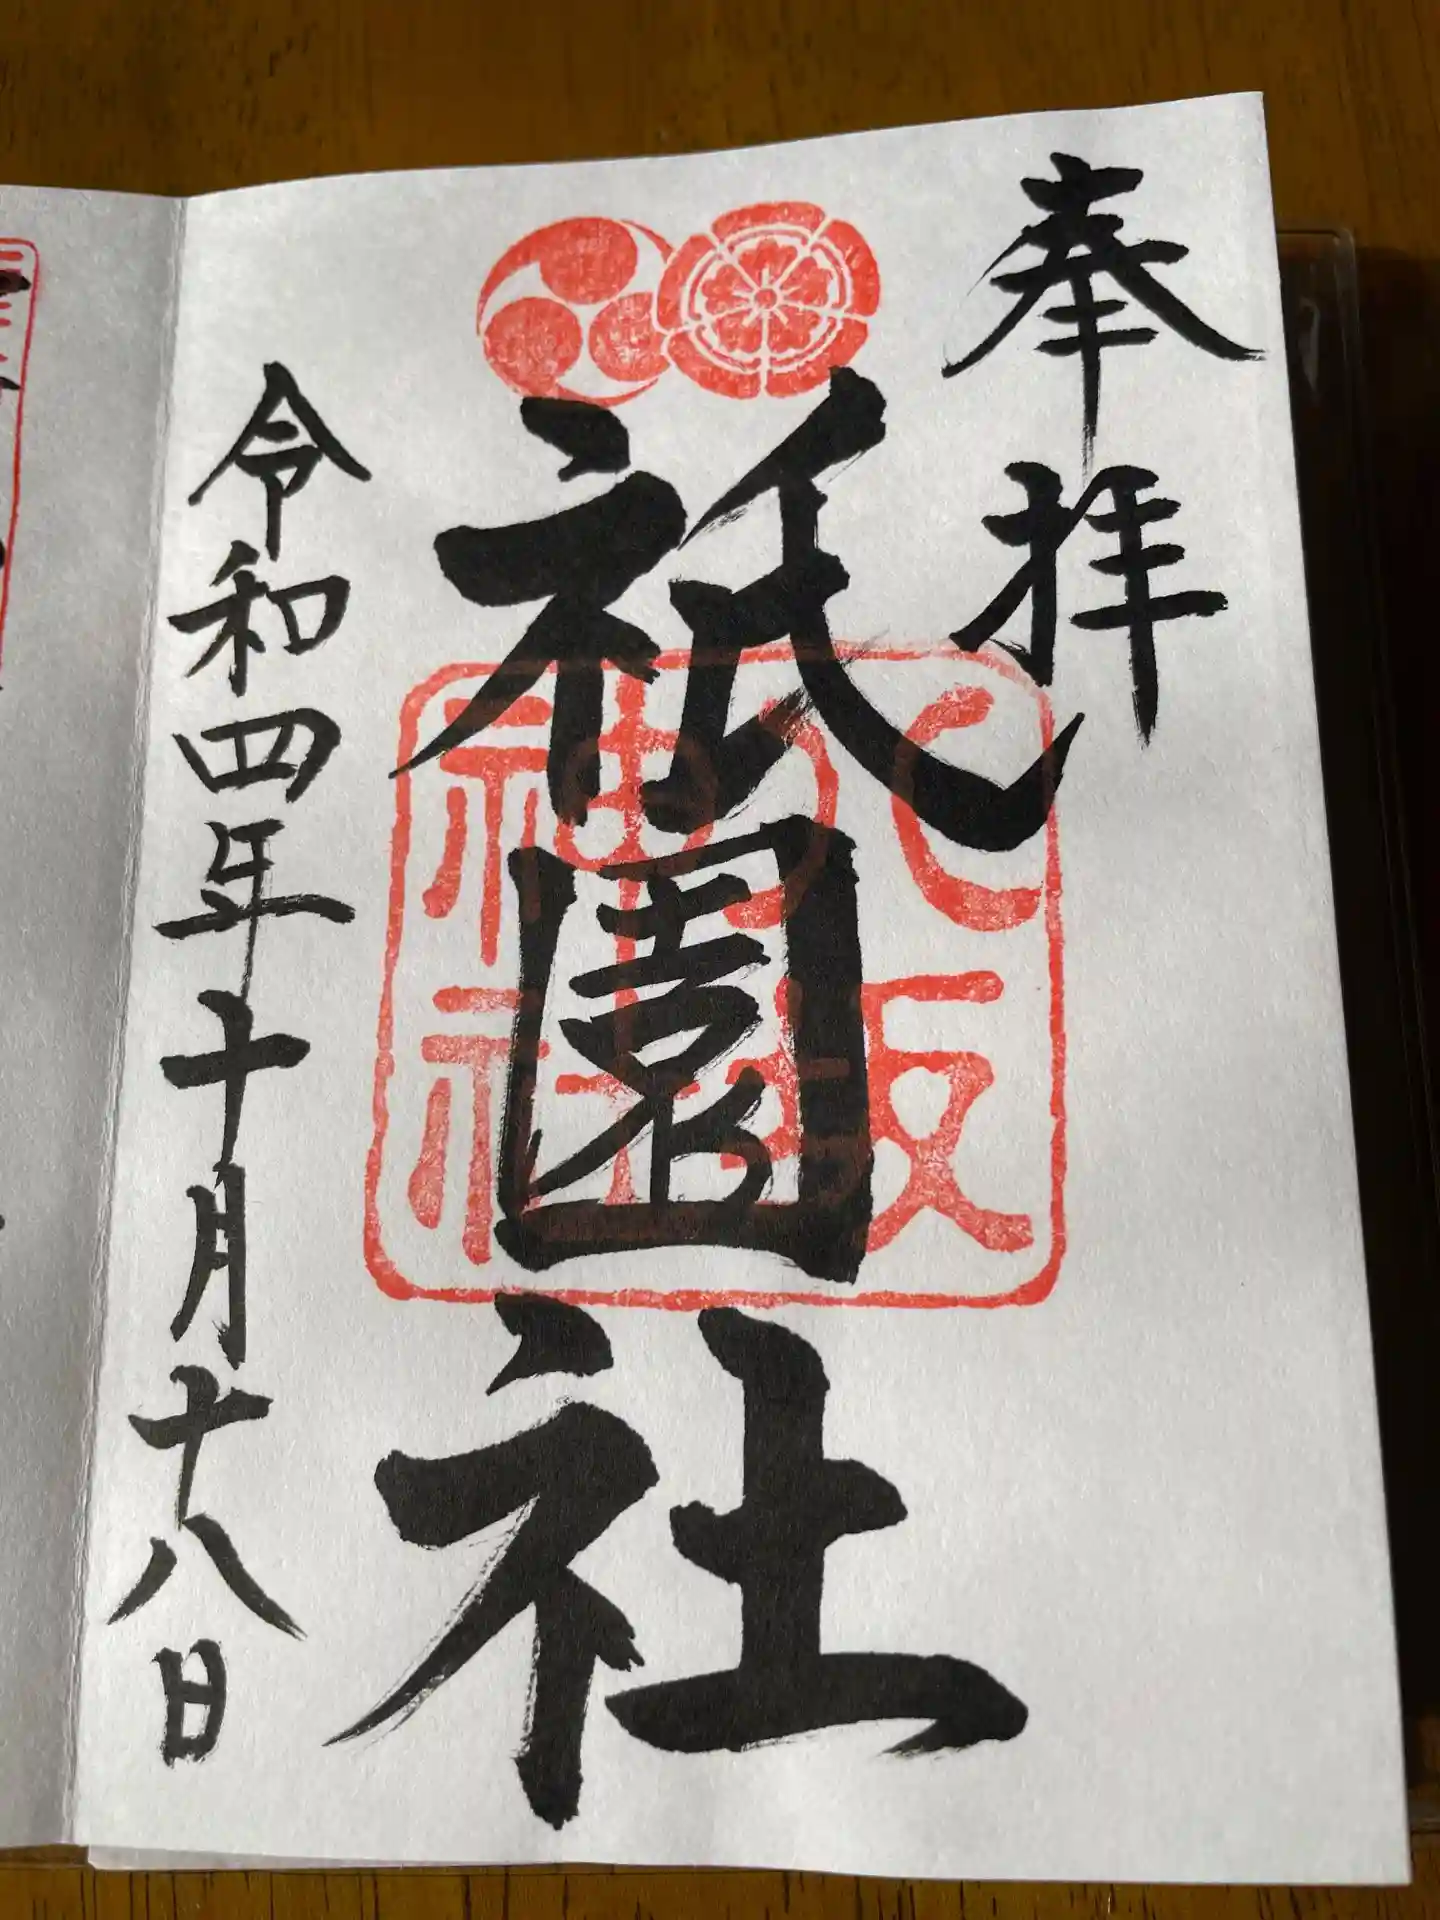 奉拝
祇園社
八坂神社
令和四年十月十八日